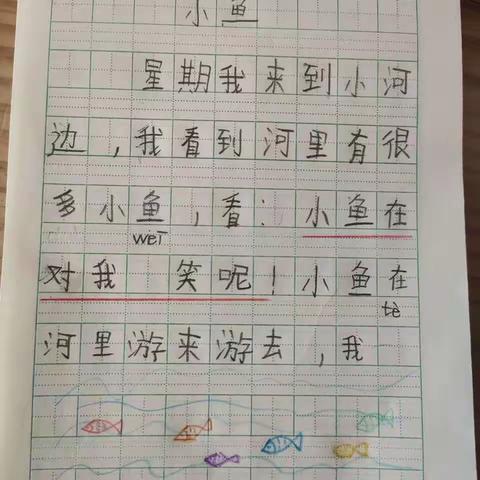 小鱼
星期我来到小河
边，我看到河里有很
多小鱼，看：小鱼在
weī
对我 笑呢！小鱼在
tè
河里游来游去，我